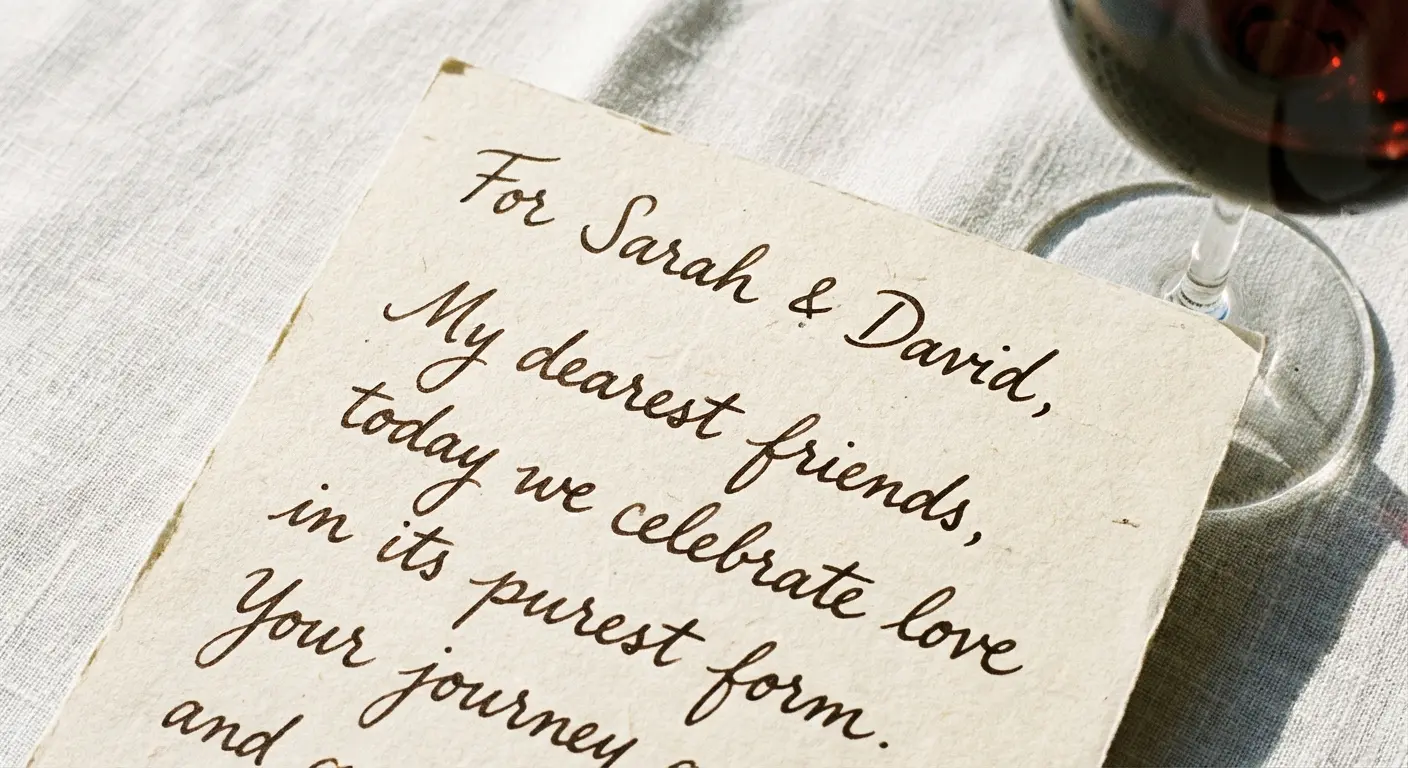 For Sarah & David,
My dearest friends,
today we celebrate love
in its purest form.
Your journey
and